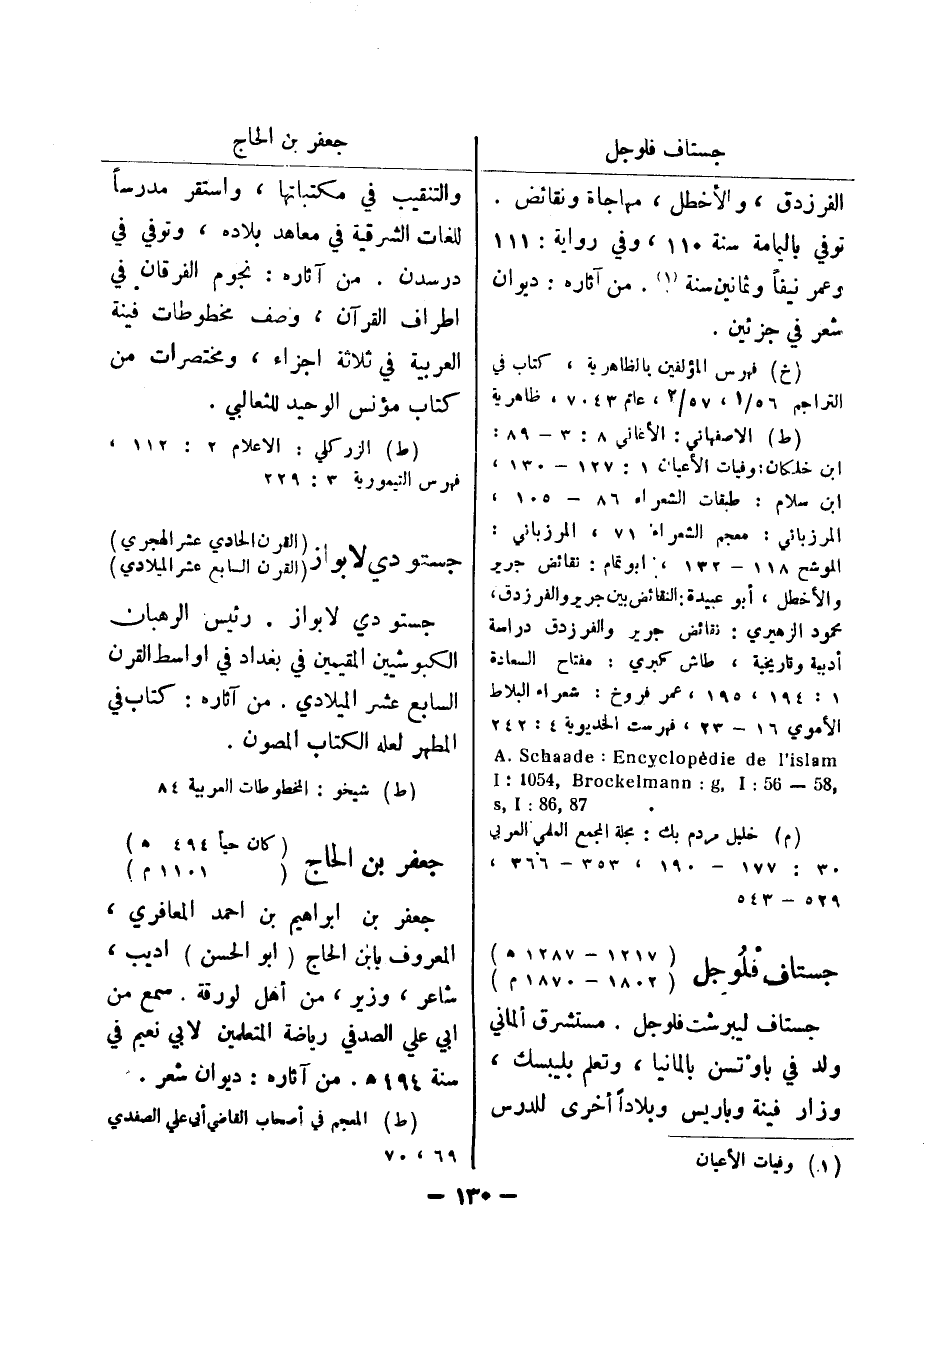 جستاف فلوجل
الفرزدق ، والأخطل ، مهاجاة ونقائض .
توفي باليامة سنة ١١٠ ، وفي رواية : ١١١
وعمر نيفاً وثمانين سنة (١) . من آثاره : ديوان
شعر في جزئين .
(خ) فهرس المؤلفين بالظاهرية ، كتاب في
التراجم ١/٥٦ ، ٢/٥٧ ، عام ٧٠٤٣ ، ظاهرية
(ط) الاصفهاني : الأغاني ٨ : ٣ – ٨٩ :
ابن خلكان : وفيات الأعيان ١ : ١٢٧ – ١٣٠ ،
ابن سلام : طبقات الشعراء ٨٦ – ١٠٥ ،
المرزباني : معجم الشعراء ٧١ ، المرزباني :
الموشح ١١٨ – ١٣٢ ، ابو تمام : نقائض جرير
والأخطل ، أبو عبيدة : النقائض بين جرير والفرزدق ،
محمود الزهيري : نقائض جرير والفرزدق دراسة
أدبية وتاريخية ، طاش كبري : مفتاح السعادة
١ : ١٩٤ ، ١٩٥ ، عمر فروخ : شعراء البلاط
الأموي ١٦ – ٢٣ ، فهرست الخديوية ٤ : ٢٤٢
A. Schaade : Encyclopédie de l'islam
I : 1054, Brockelmann : g, I : 56 — 58,
s, I : 86, 87 .
(م) خليل مردم بك : مجلة المجمع العلمي العربي
٣٠ : ١٧٧ – ١٩٠ ، ٣٥٣ – ٣٦٦ ،
٥٢٩ – ٥٤٣
جستاف فلُوجل ( ١٢١٧ – ١٢٨٧ ه )
( ١٨٠٢ – ١٨٧٠ م )
جستاف ليبرشت فلوجل . مستشرق ألماني
ولد في باوتسن بالمانيا ، وتعلم بليبسك ،
وزار فينة وباريس وبلاداً أخرى للدرس
(١) وفيات الأعيان
جعفر بن الحاج
والتنقيب في مكتباتها ، واستقر مدرساً
للغات الشرقية في معاهد بلاده ، وتوفي في
درسدن . من آثاره : نجوم الفرقان في
اطراف القرآن ، وصف مخطوطات فينة
العربية في ثلاثة اجزاء ، ومختصرات من
كتاب مؤنس الوحيد للثعالبي .
(ط) الزركلي : الاعلام ٢ : ١١٢ ،
فهرس التيمورية ٣ : ٢٢٩
جستو دي لابواز (القرن الحادي عشر الهجري)
(القرن السابع عشر الميلادي)
جستو دي لابواز . رئيس الرهبان
الكبوشيين المقيمين في بغداد في اواسط القرن
السابع عشر الميلادي . من آثاره : كتاب في
المطهر لعله الكتاب المصون .
(ط) شيخو : المخطوطات العربية ٨٤
جعفر بن الحاج ( كان حياً ٤٩٤ ه )
( ١١٠١ م )
جعفر بن ابراهيم بن احمد المعافري ،
المعروف بابن الحاج ( ابو الحسن ) اديب ،
شاعر ، وزير ، من أهل لورقة . سمع من
ابي علي الصدفي رياضة المتعلمين لابي نعيم في
سنة ٤٩٤ ه . من آثاره : ديوان شعر .
(ط) المعجم في أصحاب القاضي أبي علي الصفدي
٦٩ ، ٧٠
– ١٣٠ –